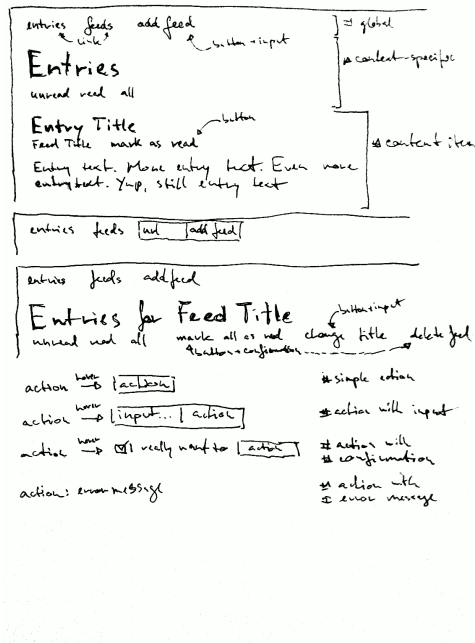 entries feeds add feed # global
link button + input
Entries # context-specific
unread read all
Entry Title button
Feed Title mark as read
Entry text. More entry text. Even more # content item
entry text. Yup, still entry text
entries feeds url add feed
entries feeds add feed
Entries for Feed Title button + input
unread read all mark all as read change title delete feed
button + confirmation
action hover action # simple action
action hover input... action # action with input
action hover I really want to action # action with
# confirmation
action: error message # action with
# error message